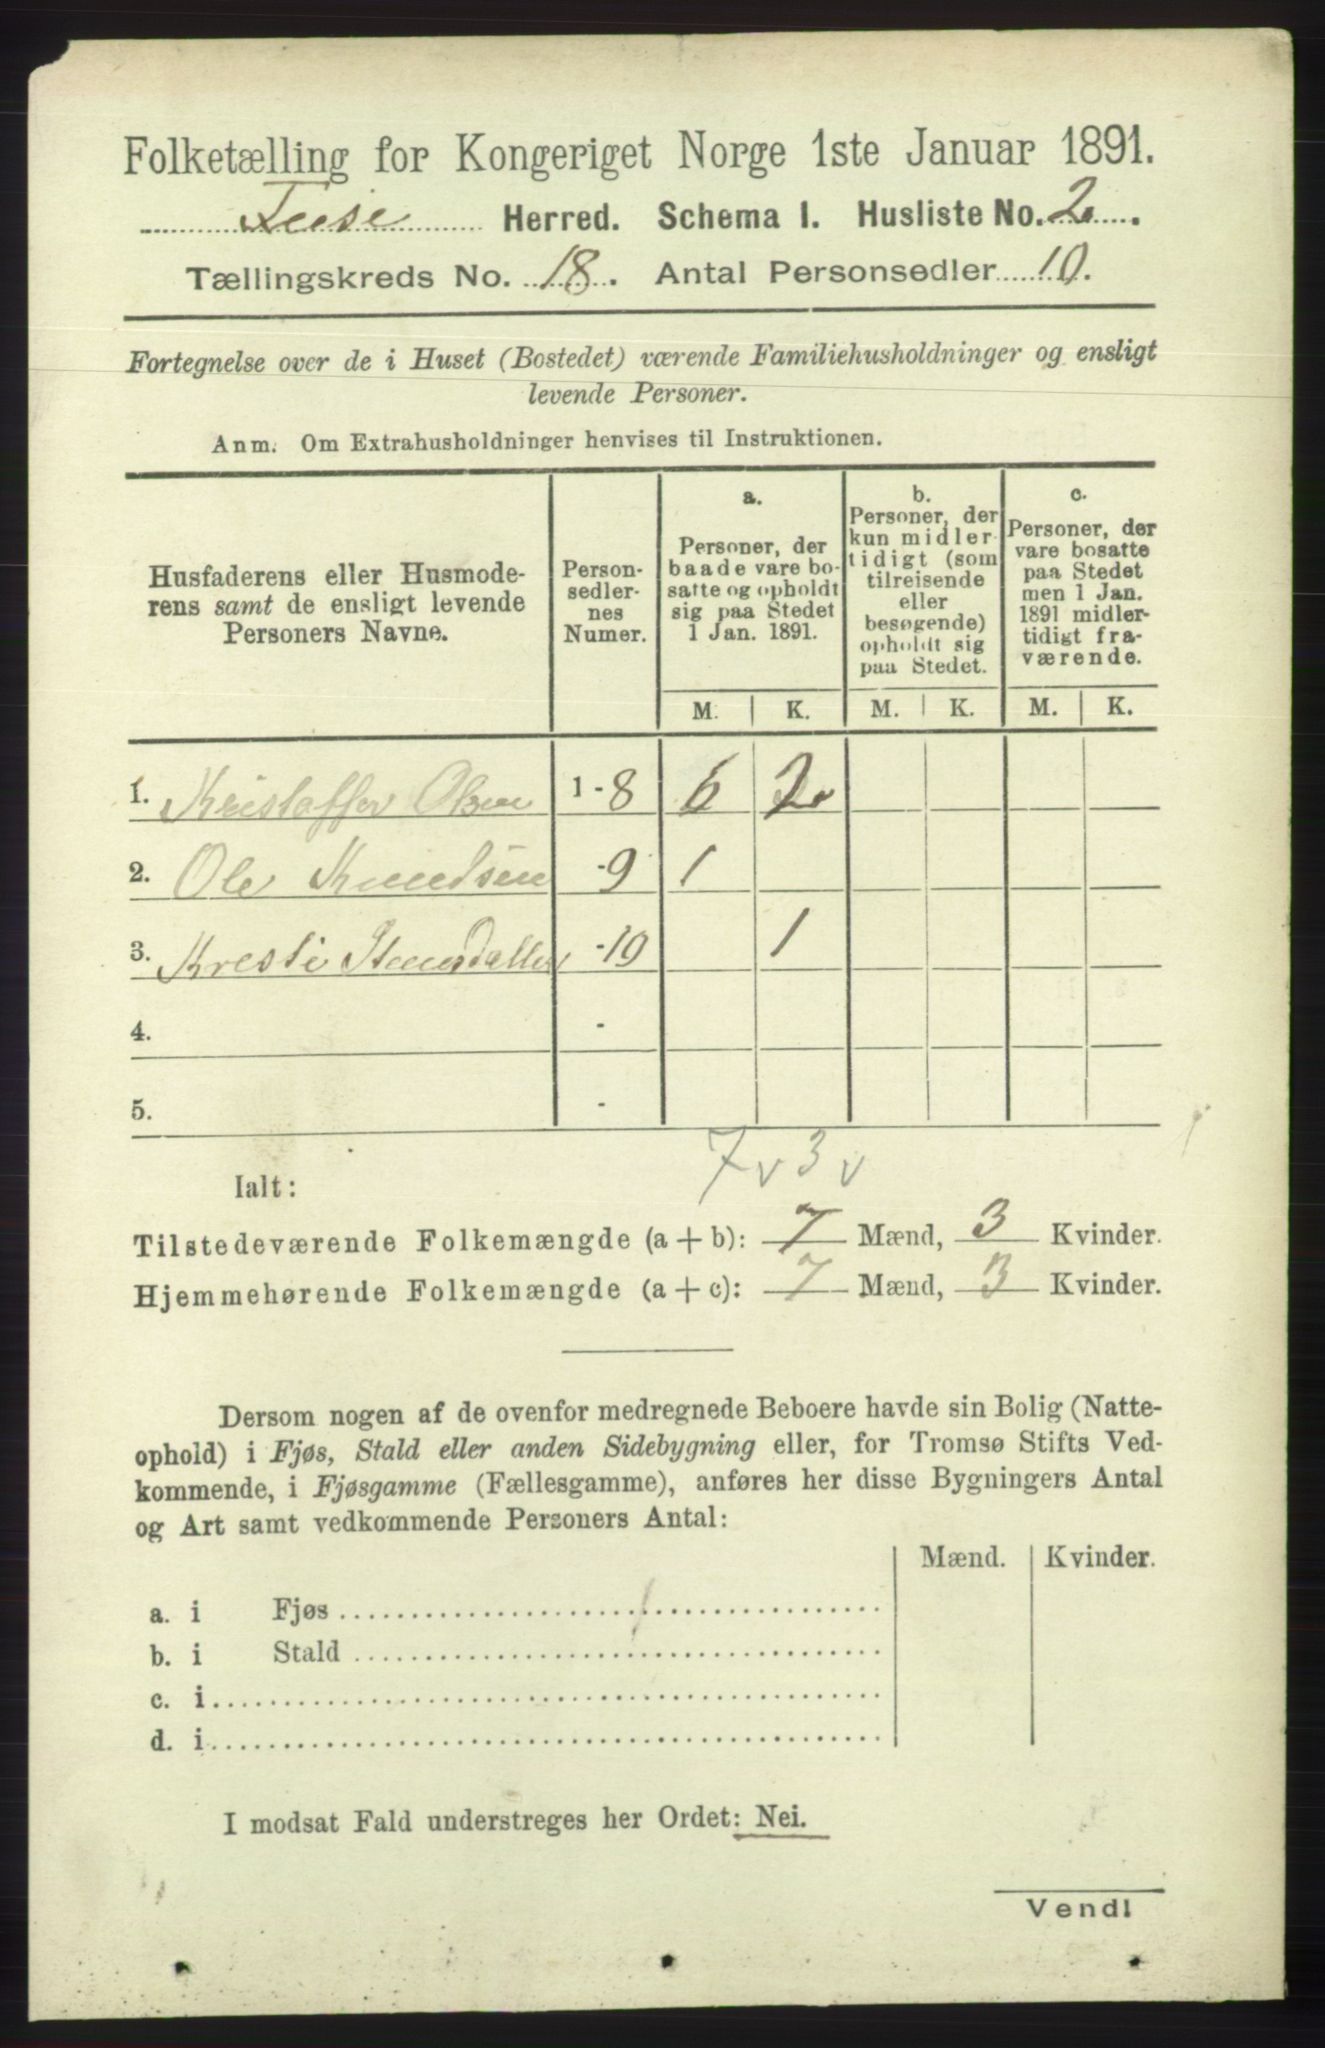 Folketælling for Kongeriget Norge 1ste Januar 1891.
Herred. Schema I. Husliste No. 2.
Tællingskreds No. 18. Antal Personsedler 10.
Fortegnelse over de i Huset (Bostedet) værende Familiehusholdninger og ensligt
levende Personer.
Anm. Om Extrahusholdninger henvises til Instruktionen.
Husfaderens eller Husmode-
rens samt de ensligt levende
Personers Navne.
Person-
sedler-
nes
Numer.
a.
Personer, der
baade vare bo-
satte og opholdt
sig paa Stedet
1 Jan. 1891.
b.
Personer, der
kun midler-
tidigt (som
tilreisende
eller
besøgende)
opholdt sig
paa Stedet.
c.
Personer, der
vare bosatte
paa Stedet
men 1 Jan.
1891 midler-
tidigt fra-
værende.
M. K. M. K. M. K.
1. Kristoffer Olsen 1 - 8 6 2
2. Ole Knudsen - 9 1
3. Kresti - 10 1
4. -
5. -
7 v 3 v
Ialt:
Tilstedeværende Folkemængde (a + b): 7 Mænd, 3 Kvinder.
Hjemmehørende Folkemængde (a + c): 7 Mænd, 3 Kvinder.
Dersom nogen af de ovenfor medregnede Beboere havde sin Bolig (Natte-
ophold) i Fjøs, Stald eller anden Sidebygning eller, for Tromsø Stifts Ved-
kommende, i Fjøsgamme (Fællesgamme), anføres her disse Bygningers Antal
og Art samt vedkommende Personers Antal:
Mænd. Kvinder.
a. i Fjøs
b. i Stald
c. i
d. i
I modsat Fald understreges her Ordet: Nei.
Vend!